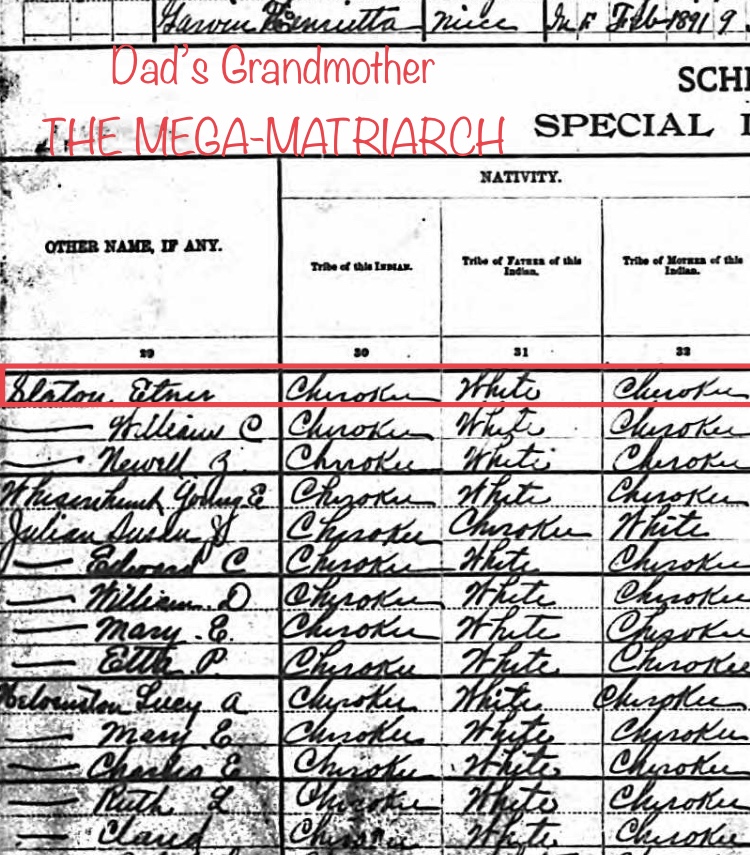 Garvin Henrietta niece In F Feb 1891 9
Dad's Grandmother
SCH
THE MEGA-MATRIARCH SPECIAL I
NATIVITY.
OTHER NAME, IF ANY. Tribe of this INDIAN. Tribe of FATHER of this Indian. Tribe of MOTHER of this Indian.
29 30 31 32
Slaton Etner Cherokee White Cherokee
William C Cherokee White Cherokee
Newell Cherokee White Cherokee
Whisenhunt Young E Cherokee White Cherokee
Julian Susan Cherokee Cherokee White
Edward C Cherokee White Cherokee
William D Cherokee White Cherokee
Mary E. Cherokee White Cherokee
Etta P. Cherokee White Cherokee
Lucy A Cherokee White Cherokee
Mary E Cherokee White Cherokee
Charles E Cherokee White Cherokee
Ruth L Cherokee White Cherokee
Clared Cherokee White Cherokee